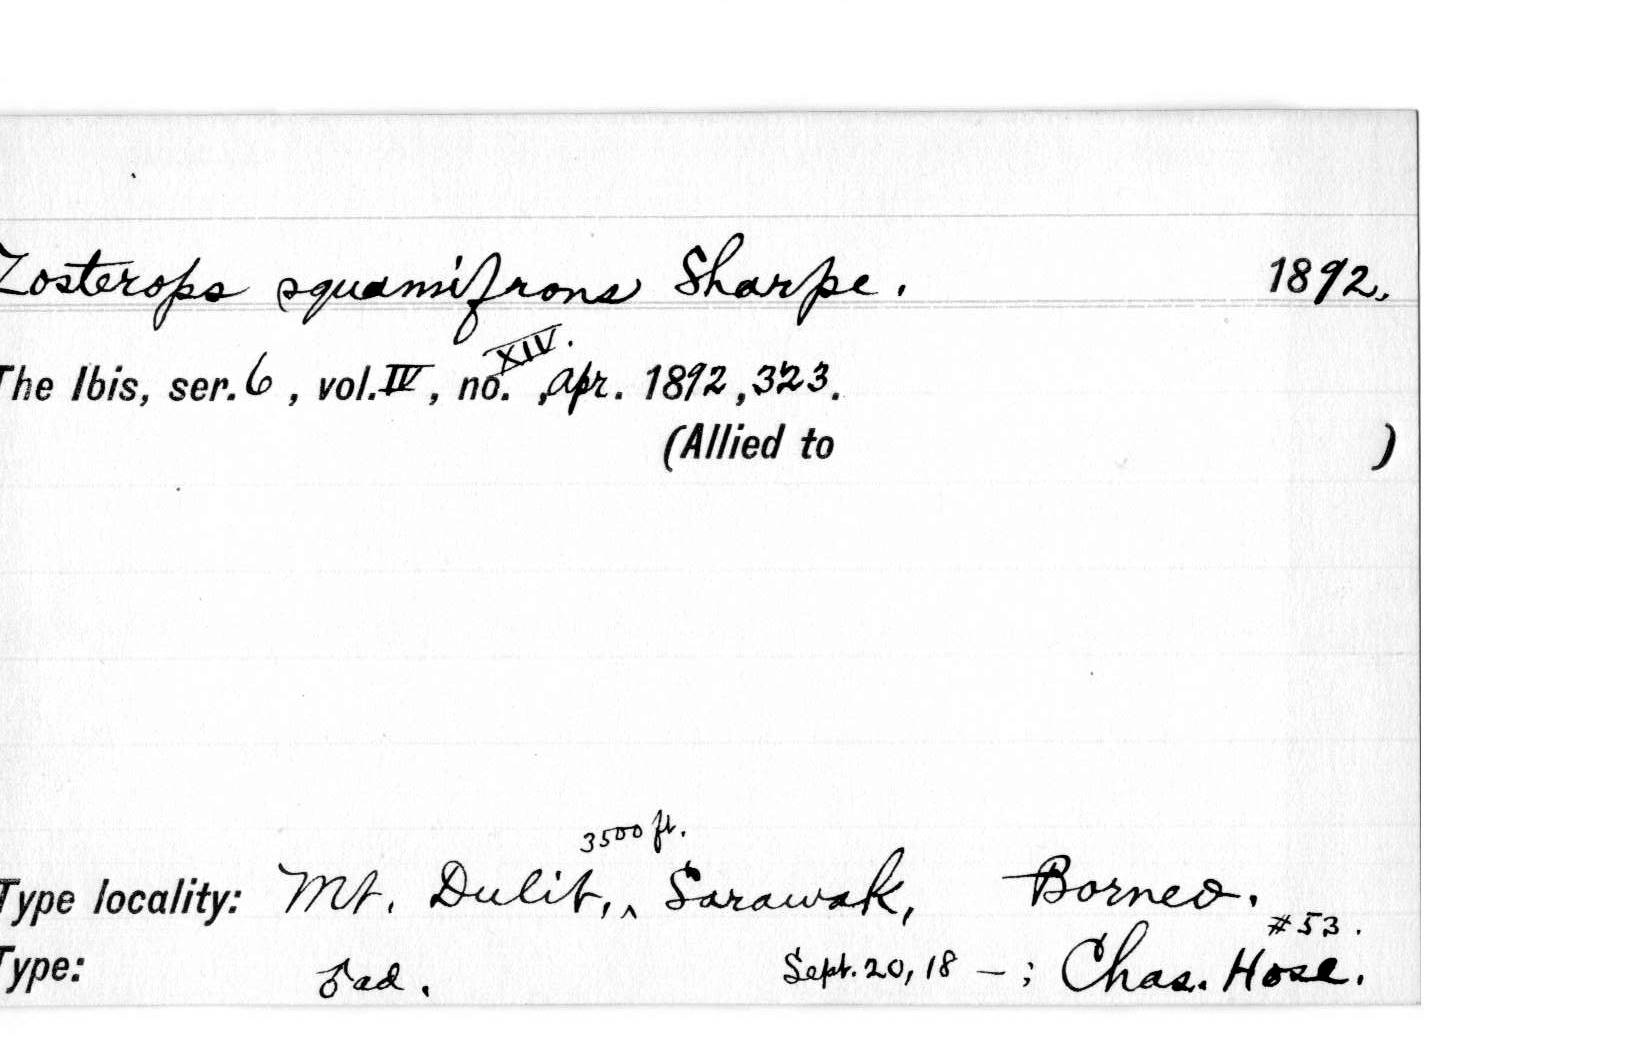 Zosterops squamifrons Sharpe. 1892.
The Ibis, ser. 6, vol. IV, no. XIV. , Apr. 1892, 323.
(Allied to )
3500 ft.
Type locality: Mt. Dulit, ‸ Sarawak, Borneo.
#53.
Type: ♂ ad. Sept. 20, 18 – ; Chas. Hose.